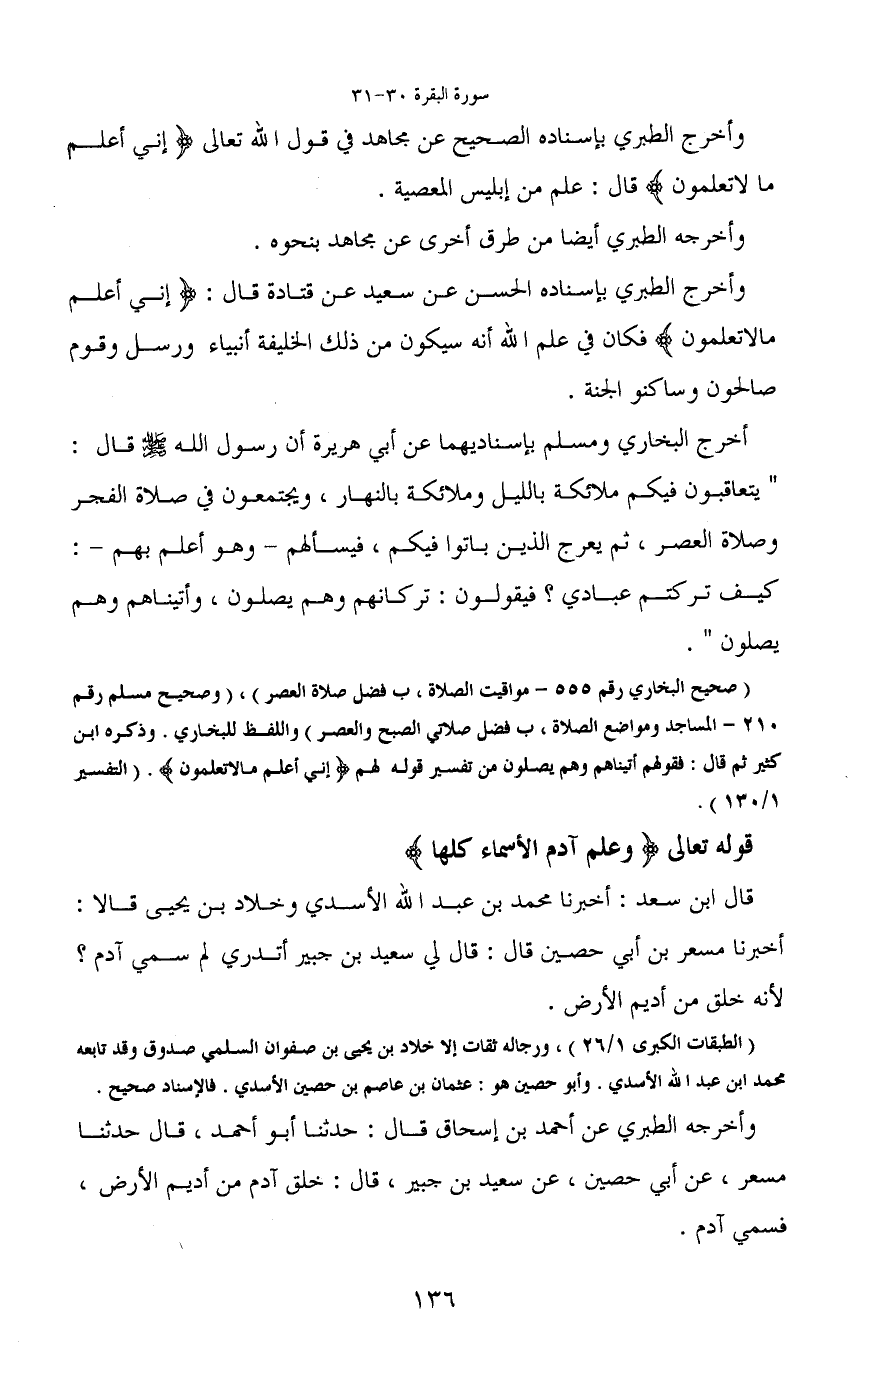 سورة البقرة ٣٠-٣١
وأخرج الطبري بإسناده الصحيح عن مجاهد في قول الله تعالى ﴿ إني أعلم
ما لاتعلمون ﴾ قال : علم من إبليس المعصية .
وأخرجه الطبري أيضا من طرق أخرى عن مجاهد بنحوه .
وأخرج الطبري بإسناده الحسن عن سعيد عن قتادة قال : ﴿ إني أعلم
مالاتعلمون ﴾ فكان في علم الله أنه سيكون من ذلك الخليفة أنبياء ورسل وقوم
صالحون وساكنو الجنة .
أخرج البخاري ومسلم بإسناديهما عن أبي هريرة أن رسول الله ﷺ قال :
" يتعاقبون فيكم ملائكة بالليل وملائكة بالنهار ، ويجتمعون في صلاة الفجر
وصلاة العصر ، ثم يعرج الذين باتوا فيكم ، فيسألهم - وهو أعلم بهم - :
كيف تركتم عبادي ؟ فيقولون : تركانهم وهم يصلون ، وأتيناهم وهم
يصلون " .
( صحيح البخاري رقم ٥٥٥ - مواقيت الصلاة ، ب فضل صلاة العصر ) ، ( وصحيح مسلم رقم
٢١٠ - المساجد ومواضع الصلاة ، ب فضل صلاتي الصبح والعصر ) واللفظ للبخاري . وذكره ابن
كثير ثم قال : فقولهم أتيناهم وهم يصلون من تفسير قوله لهم ﴿ إني أعلم مالاتعلمون ﴾ . ( التفسير
١٣٠/١ ) .
قوله تعالى ﴿ وعلم آدم الأسماء كلها ﴾
قال ابن سعد : أخبرنا محمد بن عبد الله الأسدي وخلاد بن يحيى قالا :
أخبرنا مسعر بن أبي حصين قال : قال لي سعيد بن جبير أتدري لم سمي آدم ؟
لأنه خلق من أديم الأرض .
( الطبقات الكبرى ٢٦/١ ) ، ورجاله ثقات إلا خلاد بن يحيى بن صفوان السلمي صدوق وقد تابعه
محمد ابن عبد الله الأسدي . وأبو حصين هو : عثمان بن عاصم بن حصين الأسدي . فالإسناد صحيح .
وأخرجه الطبري عن أحمد بن إسحاق قال : حدثنا أبو أحمد ، قال حدثنا
مسعر ، عن أبي حصين ، عن سعيد بن جبير ، قال : خلق آدم من أديم الأرض ،
فسمي آدم .
١٣٦